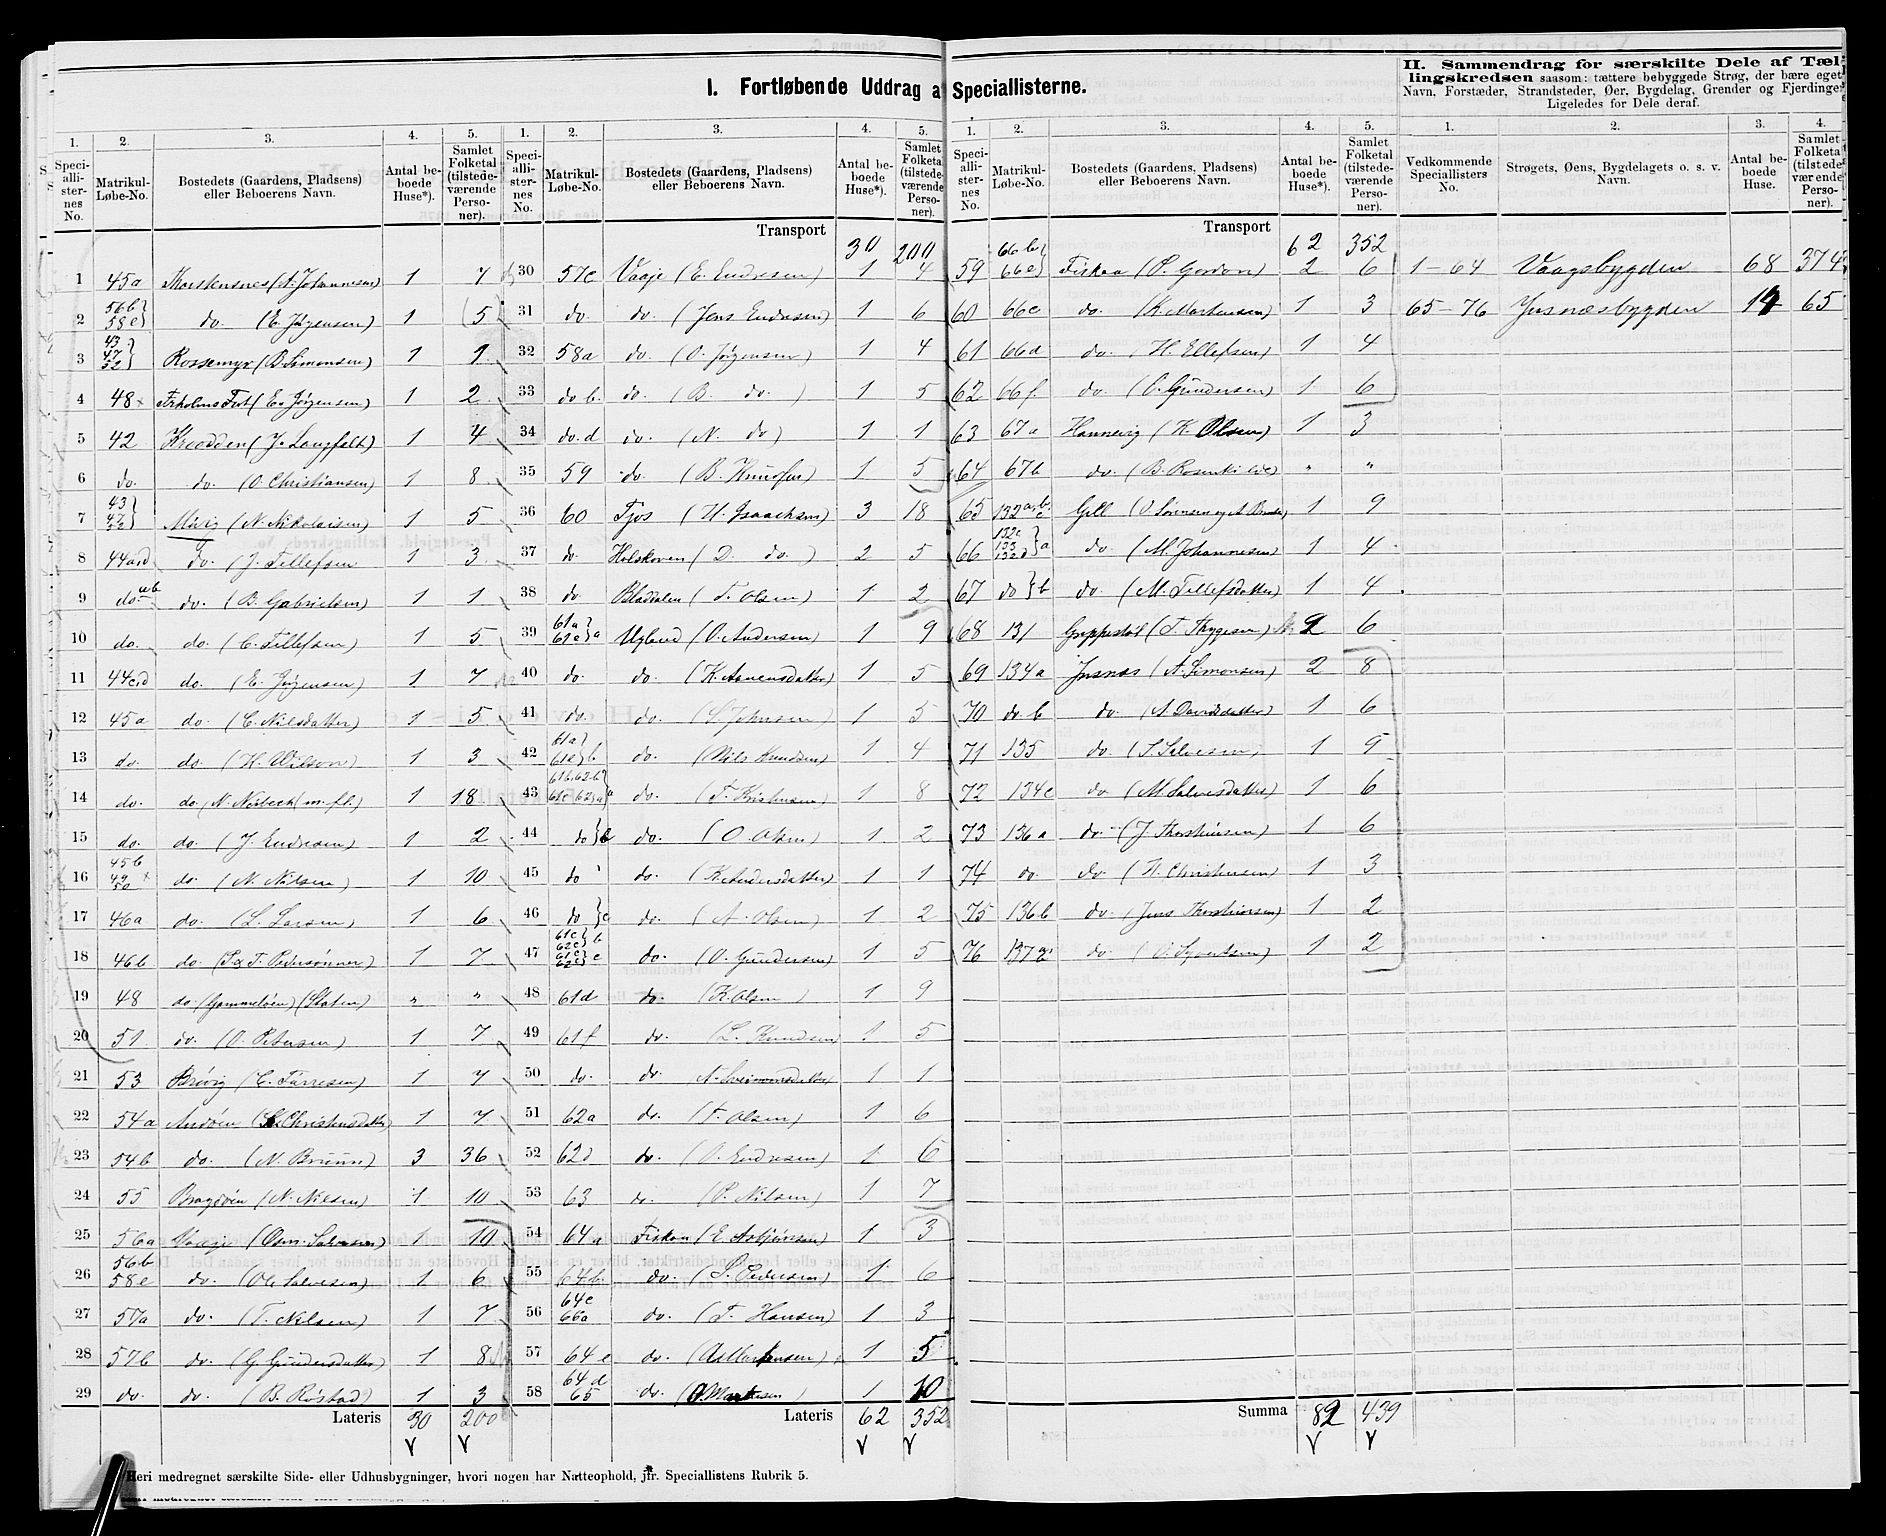 I. Fortløbende Uddrag a Speciallisterne.
II. Sammendrag for særskilte Dele af Tæl-
lingskredsen saasom: tættere bebyggede Strøg, der bære eget
Navn, Forstæder, Strandsteder, Øer, Bygdelag, Grender og Fjerdinger
Ligeledes for Dele deraf.
1. 2. 3. 4. 5. 1. 2. 3. 4. 5. 1. 2. 3. 4. 5. 1. 2. 3. 4.
Speci-allister-nes No. Matrikul-Løbe-No. Bostedets (Gaardens, Pladsens) eller Beboerens Navn. Antal be-boede Huse*). Samlet Folketal (tilstede-værende Perso-ner).
Speci-allister-nes No. Matrikul-Løbe-No. Bostedets (Gaardens, Pladsens) eller Beboerens Navn. Antal be-boede Huse*). Samlet Folketal (tilstede-værende Perso-ner).
Speci-allister-nes No. Matrikul-Løbe-No. Bostedets (Gaardens, Pladsens) eller Beboerens Navn. Antal be-boede Huse*). Samlet Folketal (tilstede-værende Perso-ner).
Vedkommende Speciallisters No. Strøgets, Øens, Bygdelagets o. s. v. Navn. Antal be-boede Huse. Samlet Folketal (tilstede-værende Perso-ner).
1 45a (A. Johannesen) 1 7
2 56b 58e do. (E. Jørgensen) 1 5
3 43 47 52 Rossemyr (B. Simonsen) 1 1
4 48 (E. Jørgensen) 1 2
5 42 Krodden (J. Langfelt) 1 4
6 do. do. (O. Christiansen) 1 8
7 43 47 52 (N. Nikolaisen) 1 5
8 44 do. (J. Tellefsen 1 3
9 do. do. (B. Gabrielsen) 1 1
10 do. do. (C. Tellefsen) 1 5
11 44 do. (E. Jørgensen) 1 7
12 45a do. (C. Nilsdatter) 1 5
13 do. do. (H. Wilson) 1 3
14 do. do. (N. Nisbeck m. fl.) 1 18
15 do. do. (J. Endresen) 1 2
16 45b 49 50 do. (N. Nilsen) 1 10
17 46a do. (L. Larsen) 1 6
18 46b do. (Pedersønner) 1 7
19 48 do. (Gammeløen) (Staten) " "
20 51 do. (O. Petersen) 1 7
21 53 Brøvig (C. Tarresen) 1 7
22 54a Andøen (Christensdatter) 1 7
23 54b do. (N. Bruun) 3 36
24 55 Bragdøen (N. Nilsen) 1 10
25 56a Vaage (Osm. Salvesen) 1 10
26 56b 58e do. (Ole Salvesen) 1 6
27 57a do. (T. Nilsen) 1 7
28 57b do. (G. Gundersdatter) 1 8
29 do. do. (B. Røstad) 1 3
Lateris 30 200
Transport 30 200
30 57c Vaaje (E. Endresen) 1 4
31 do. do. (Jens Endresen) 1 6
32 58a do. (O. Jørgensen) 1 4
33 do b. do. (B. do.) 1 5
34 do. d do. (N. do) 1 1
35 59 do. (B. Knudsen) 1 5
36 60 Tjos (H. Isaachsen) 3 18
37 do. Holskoven (D. do.) 2 5
38 do. Bladdalen (T. Olsen) 1 2
39 61a 61e a Ugland (O. Andersen) 1 9
40 do. do. (K. Aanensdatter) 1 5
41 do. do. (S. Johnsen) 1 5
42 61a 61e b do. (Nils Knudsen) 1 4
43 61b 62b 61c 62a a do. (T. Kristensen) 1 8
44 do b do. (O. Olsen) 1 2
45 do do. (K. Andersdatter) 1 1
46 do c do. (A. Olsen) 1 2
47 61c 62c b 61c 62c c do. (O. Gundersen) 1 5
48 61d do. (K. Olsen) 1 9
49 61f do. (L. Knudsen) 1 5
50 do. do. 1 1
51 62a do. (T. Olsen) 1 6
52 62d do. (O. Endresen) 1 6
53 63 do. (P. Nilsen) 1 7
54 64a Fiskaa (E. Asbjørnsen) 1 3
55 64b do. (S. Pedersen) 1 6
56 64c 66a do. (T. Hansen) 1 3
57 64e do. 1 5
58 64d 65 do. 1 10
Lateris 62 352
Transport 62 352
59 66b 66e Fiskaa (P. Gordon) 2 6
60 66c do. (K. Mortensen) 1 3
61 66d do. (H. Ellefsen) 1 4
62 66f. do. (O. Gundersen) 1 6
63 67a Hannevig (K. Olsen) 1 3
64 67b do. (B. Rosenkilde) " "
65 132a, b, c Gill 1 9
66 132c 133 132d a do. (M. Johannesen) 1 4
67 do b do. (M. Tellefsdatter) 1 4
68 131 Gruppestøl (T. Thygesen) 2 6
69 134a Jusnæs (A. Simonsen) 2 8
70 do. b do. (A. Davidsdatter) 1 6
71 135 do. (S. Salvesen) 1 9
72 134c do. (M. Salvesdatter) 1 6
73 136a do. (J. Thorstensen) 1 6
74 do. do. (H. Christensen) 1 3
75 136b do. (Jens Thorstensen) 1 2
76 137a do. (O. Syvertsen) 1 2
Summa 82 439
1–64 Vaagsbygden 68 374
65–76 Jusnæsbygden 14 65
Heri medregnet særskilte Side- eller Udhusbygninger, hvori nogen har Natteophold, jfr. Speciallistens Rubrik 5.